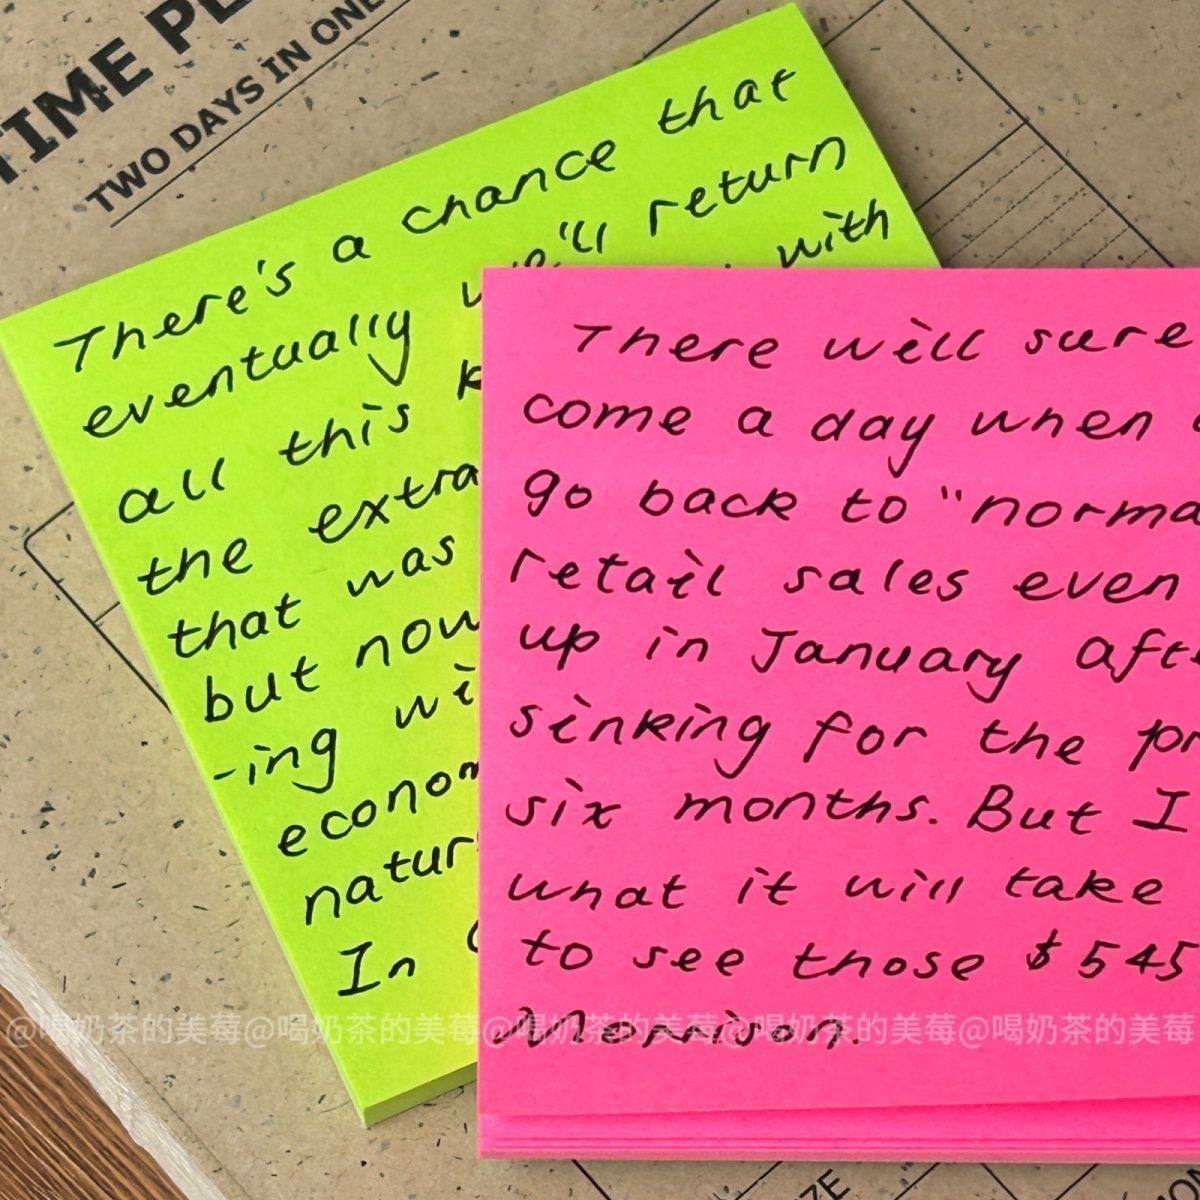 TIME
TWO DAYS IN ONE
There's a chance that
eventually we'll return
all this with
the extra
that was
but now
-ing wi
econom
natur
In
There will sure
come a day when
go back to "norma
retail sales even
up in January afte
sinking for the pr
six months. But I
what it will take
to see those $545
Morrison.
@喝奶茶的美莓@喝奶茶的美莓@喝奶茶的美莓@喝奶茶的美莓@喝奶茶的美莓